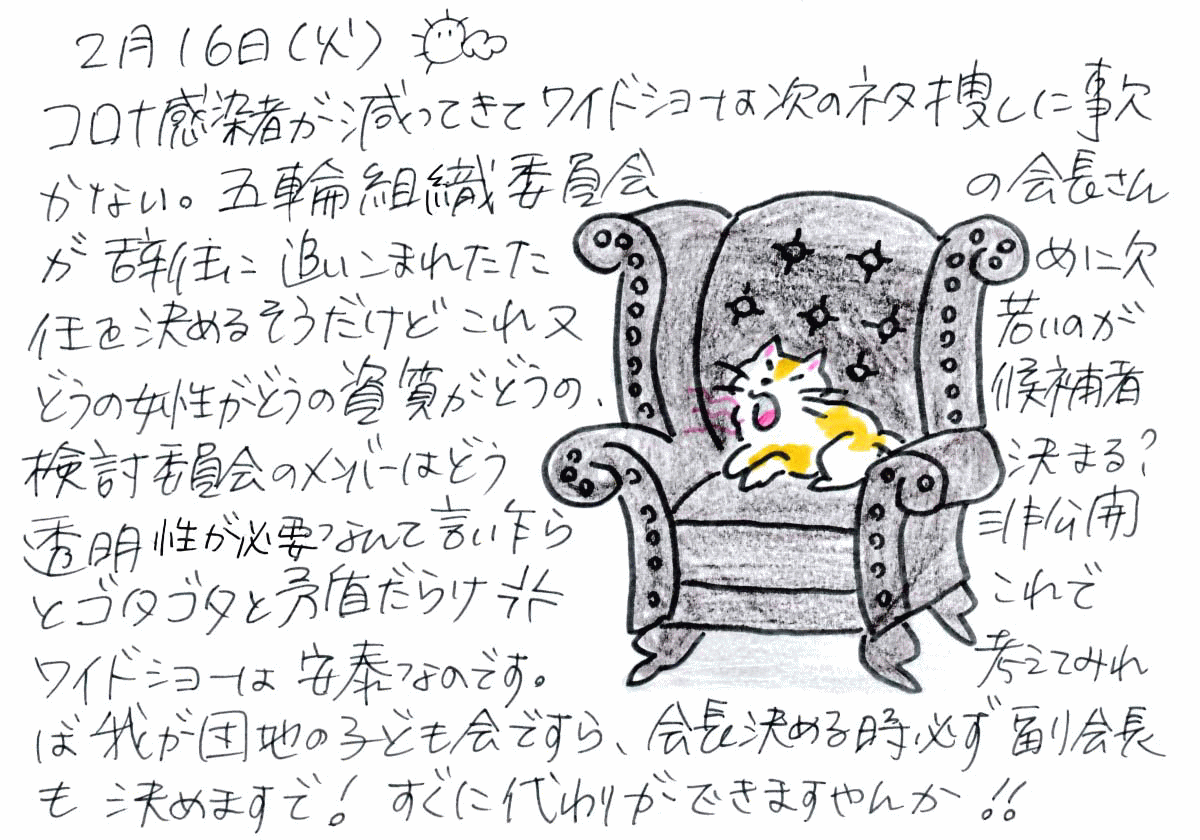 2月16日(火)
コロナ感染者が減ってきてワイドショーは次のネタ捜しに事欠
かない。五輪組織委員会の会長さん
が辞任に追いこまれたために欠
任を決めるそうだけどこれ又若いのが
どうの女性がどうの資質がどうの、候補者
検討委員会のメンバーはどう決まる?
透明性が必要なんて言い乍ら非公開
とゴタゴタと矛盾だらけ これで
ワイドショーは安泰なのです。考えてみれ
ば我が団地の子ども会ですら、会長決める時必ず副会長
も決めますで!すぐに代わりができますやんか!!